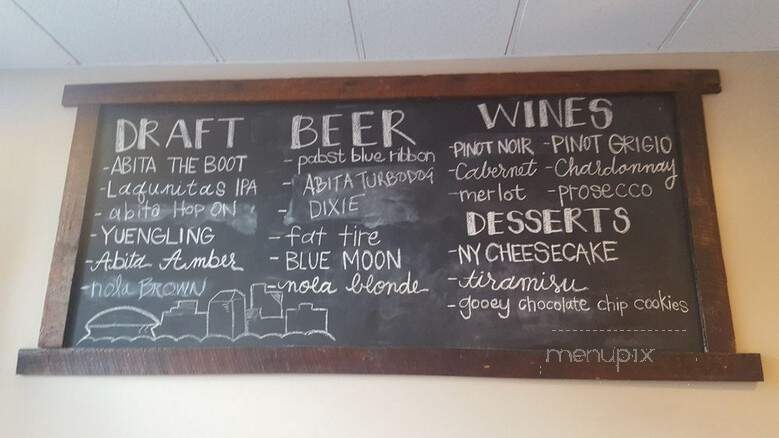 DRAFT
-ABITA THE BOOT
-Lagunitas IPA
-abita HOP ON
-YUENGLING
-Abita Amber
-nola BROWN
BEER
-pabst blue ribbon
-ABITA TURBODOG
-DIXIE
-fat tire
-BLUE MOON
-nola blonde
WINES
-PINOT NOIR -PINOT GRIGIO
-Cabernet -Chardonnay
-merlot -prosecco
DESSERTS
-NY CHEESECAKE
-tiramisu
-gooey chocolate chip cookies
menupix